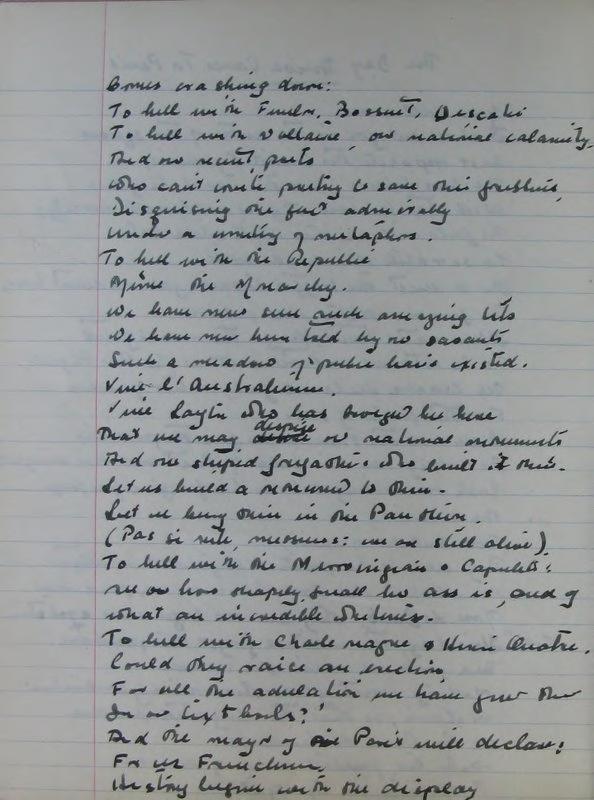 Comes crashing down:
To hell with Bossuet,
To hell with Voltaire, our national calamity,
And our recent poets
Who can't write poetry to save their
Disguising the fact admirably
Under a of metaphors.
To hell with the Republic
the Monarchy.
We have never seen such amazing tits
We have never been told by no savants
Such a meadow of pubic hairs existed.
Vive l'Australienne.
Vive Layton who has brought her here
That we may despise our national monuments
And our stupid who built them.
Let us build a monument to them.
Let us bury them in the Pantheon.
(Pas si vite, messieurs: we are still alive)
To hell with the Merovingians & Capulets:
see how shapely small her ass is, and of
what an incredible whiteness.
To hell with Charlemagne & Henri Quatre.
Could they raise an erection
For all the adulation we have given them
In our text books?'
And the mayor of Paris will declare:
For us Frenchmen,
History begins with the display